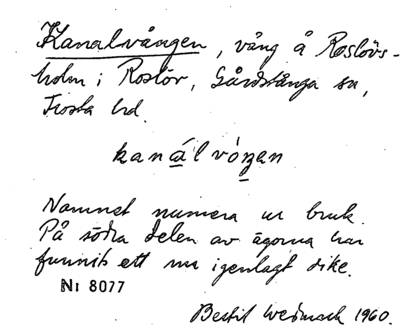 Kanalvången, vång å Roslövs-
holm i Roslöv, Gårdstånga sn,
Frosta hd.
kanálvóŋen
Namnet numera ur bruk.
På södra delen av ägorna har
funnits ett nu igenlagt dike.
Nr 8077
Bertil Wedmark 1960.